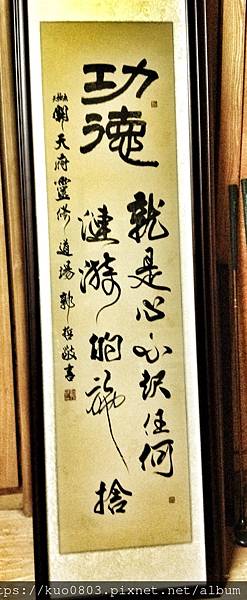 功德
就是心不起任何
漣漪的施捨
天府靈修道場 郭哲敬書
ttps://kuo0803.pixnet.net/album